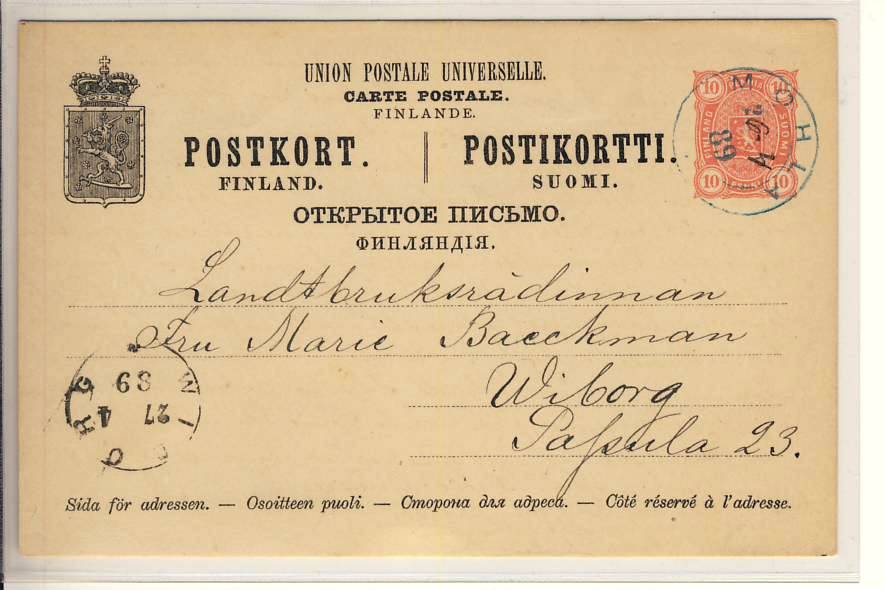 UNION POSTALE UNIVERSELLE.
CARTE POSTALE.
FINLANDE.
POSTKORT. POSTIKORTTI.
FINLAND. SUOMI.
ОТКРЫТОЕ ПИСЬМО.
ФИНЛЯНДІЯ.
10 10
FINLAND SUOMI
10 10
Landtbruksrådinnan
Fru Marie Baeckman
Wiborg
Papula 23.
27 4
89
Sida för adressen. — Osoitteen puoli. — Сторона для адреса. — Côté réservé à l'adresse.